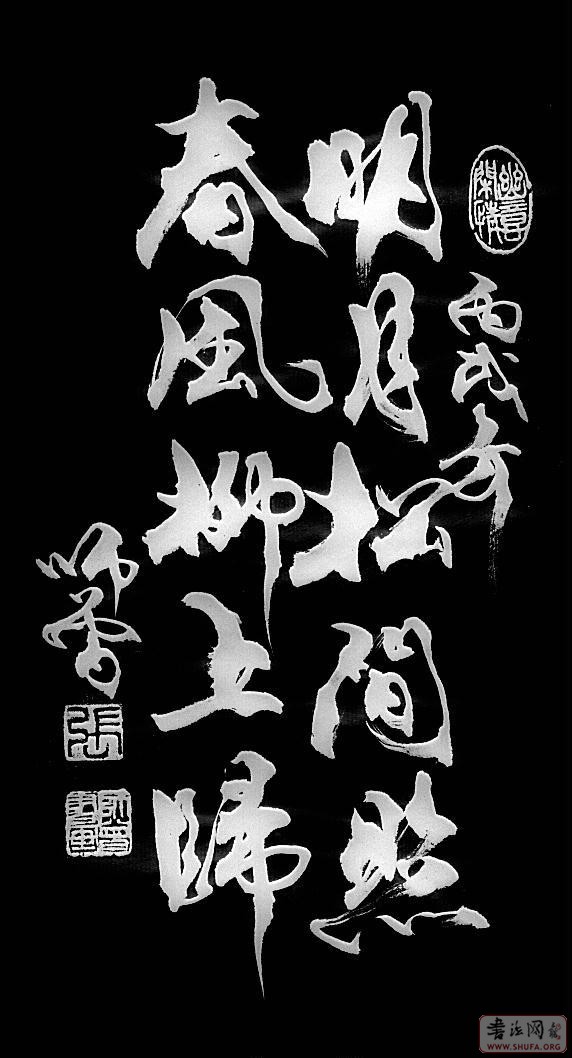 丙戌年
明月松間照
春風柳上歸
張
書法网
WWW.SHUFA.ORG